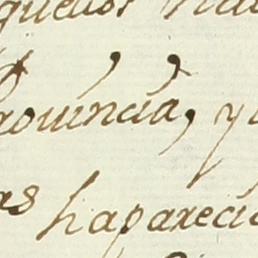 quellos na
Provincia, y
as haparecia